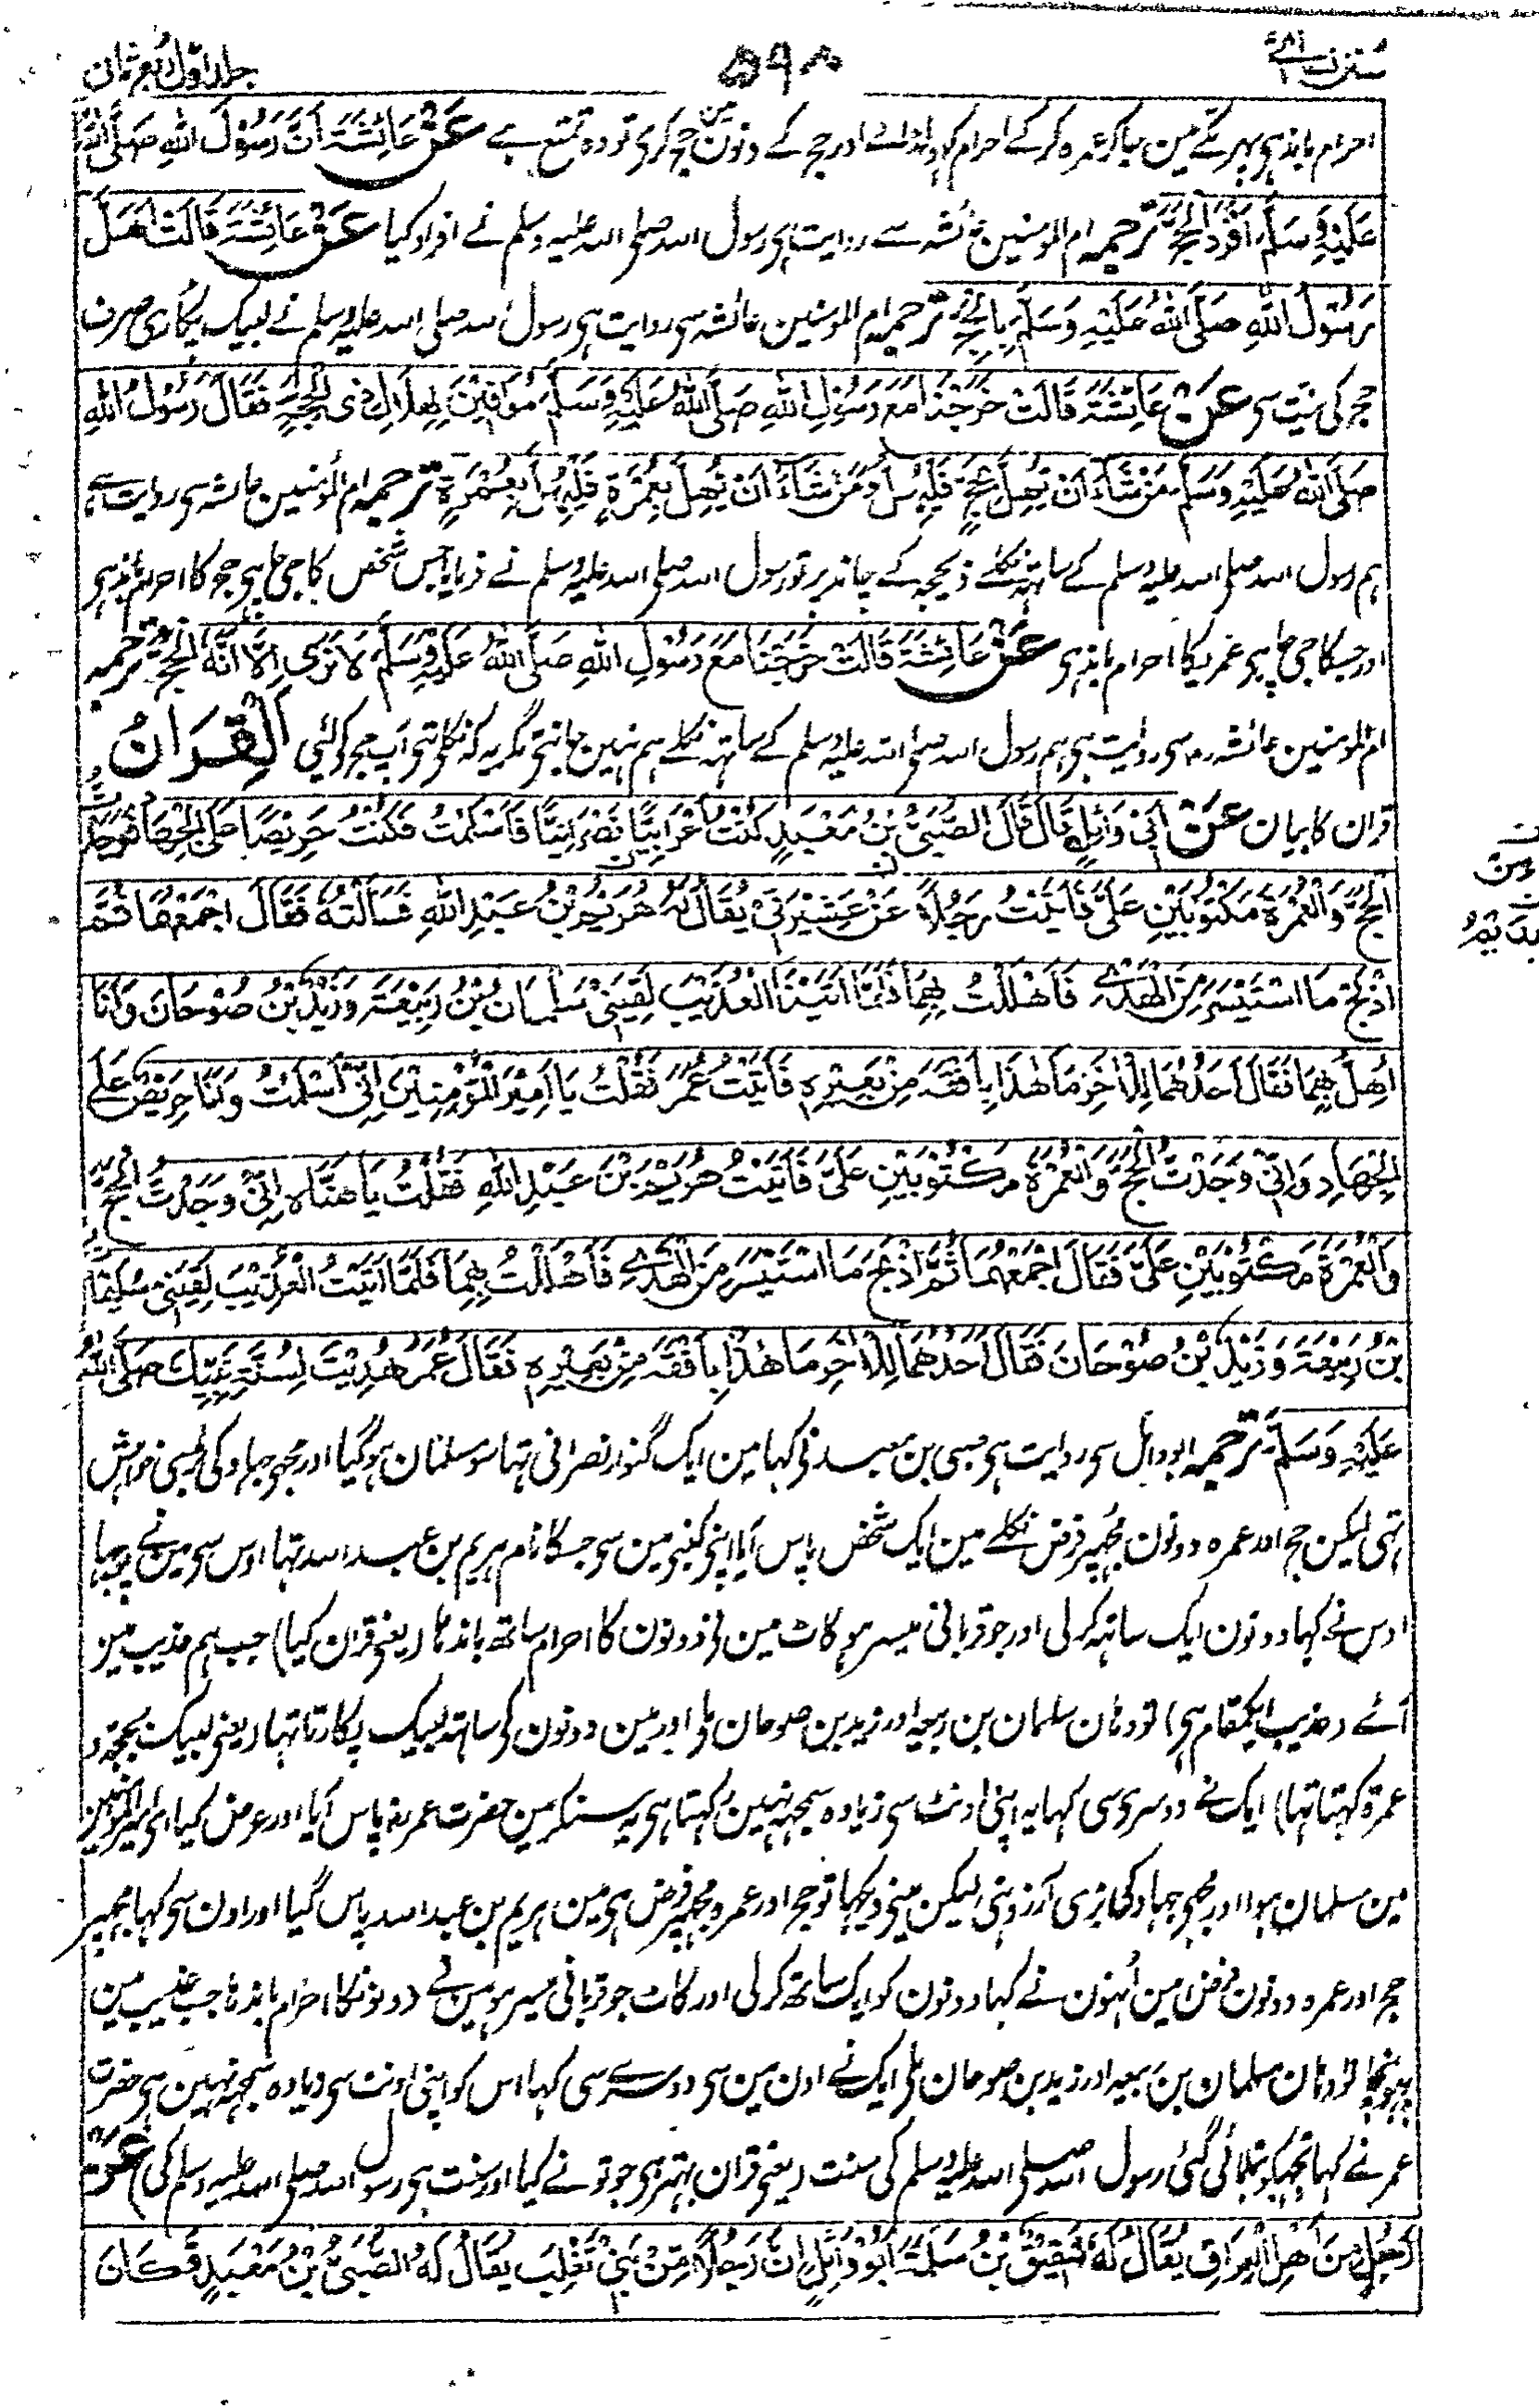 سنن نسائی ۵۹۸ جلد اول ربع ثان
احرام باندہی پہر مکے مین جا کر عمرہ کر کے احرام کہولڈالے اور حج کے دنون مین حج کری تو وہ تمتع ہے عَنْ عَائِشَةَ اَنَّ رَسُوْلَ اللهِ صَلَّى اللهُ
عَلَيْهِ وَسَلَّمَ اَفْرَدَ الْحَجَّ ترجمہ ام المومنین عائشہ سے روایت ہی رسول اللہ صلی اللہ علیہ وسلم نے افراد کیا عَنْ عَائِشَةَ قَالَتْ اَهَلَّ
رَسُوْلُ اللهِ صَلَّى اللهُ عَلَيْهِ وَسَلَّمَ بِالْحَجِّ ترجمہ ام المومنین عائشہ سی روایت ہی رسول اللہ صلی اللہ علیہ وسلم نے لبیک پکاری صرف
حج کی نیت سی عَنْ عَائِشَةَ قَالَتْ خَرَجْنَا مَعَ رَسُوْلِ اللهِ صَلَّى اللهُ عَلَيْهِ وَسَلَّمَ مُوَافِيْنَ لِهِلَالِ ذِى الْحِجَّةِ فَقَالَ رَسُوْلُ اللهِ
صَلَّى اللهُ عَلَيْهِ وَسَلَّمَ مَنْ شَاءَ اَنْ يُهِلَّ بِحَجٍّ فَلْيُهِلَّ وَمَنْ شَاءَ اَنْ يُهِلَّ بِعُمْرَةٍ فَلْيُهِلَّ بِعُمْرَةٍ ترجمہ ام المومنین عائشہ سی روایت ہے
ہم رسول اللہ صلی اللہ علیہ وسلم کے ساتہہ نکلے ذیحجہ کے چاند پر تو رسول اللہ صلی اللہ علیہ وسلم نے فرمایا جس شخص کا جی چاہی حج کا احرام باندہی
اور جسکا جی چاہی عمریکا احرام باندہی عَنْ عَائِشَةَ قَالَتْ خَرَجْنَا مَعَ رَسُوْلِ اللهِ صَلَّى اللهُ عَلَيْهِ وَسَلَّمَ لَا نَرٰى اِلَّا اَنَّهُ الْحَجُّ ترجمہ
ام المومنین عائشہ رض سی روایت ہی ہم رسول اللہ صلی اللہ علیہ وسلم کے ساتہہ نکلے ہم نہین جانتی مگر یہ کہ نکلی تہی آپ حج کو لئی اَلْقِرَانُ
قران کا بیان عَنْ اَبِىْ وَائِلٍ قَالَ قَالَ الصُّبَىُّ بْنُ مَعْبَدٍ كُنْتُ اَعْرَابِيًّا نَصْرَانِيًّا فَاَسْلَمْتُ فَكُنْتُ حَرِيْصًا عَلَى الْجِهَادِ فَوَجَدْتُ
الْحَجَّ وَالْعُمْرَةَ مَكْتُوْبَيْنِ عَلَىَّ فَاَتَيْتُ رَجُلًا مِنْ عَشِيْرَتِىْ يُقَالُ لَهُ هُرَيْمُ بْنُ عَبْدِ اللهِ فَسَاَلْتُهُ فَقَالَ اجْمَعْهُمَا ثُمَّ
اذْبَحْ مَا اسْتَيْسَرَ مِنَ الْهَدْىِ فَاَهْلَلْتُ بِهِمَا فَلَمَّا اَتَيْنَا الْعُذَيْبَ لَقِيَنِىْ سَلْمَانُ بْنُ رَبِيْعَةَ وَزَيْدُ بْنُ صُوْحَانَ وَاَنَا
اُهِلُّ بِهِمَا فَقَالَ اَحَدُهُمَا لِلْاٰخَرِ مَا هٰذَا بِاَفْقَهَ مِنْ بَعِيْرِهٖ فَاَتَيْتُ عُمَرَ فَقُلْتُ يَا اَمِيْرَ الْمُؤْمِنِيْنَ اِنِّىْ اَسْلَمْتُ وَاَنَا حَرِيْصٌ عَلَى
الْجِهَادِ وَاِنِّىْ وَجَدْتُ الْحَجَّ وَالْعُمْرَةَ مَكْتُوْبَيْنِ عَلَىَّ فَاَتَيْتُ هُرَيْمَ بْنَ عَبْدِ اللهِ فَقُلْتُ يَا هَنَاهُ اِنِّىْ وَجَدْتُ الْحَجَّ
وَالْعُمْرَةَ مَكْتُوْبَيْنِ عَلَىَّ فَقَالَ اجْمَعْهُمَا ثُمَّ اذْبَحْ مَا اسْتَيْسَرَ مِنَ الْهَدْىِ فَاَهْلَلْتُ بِهِمَا فَلَمَّا اَتَيْتُ الْعُذَيْبَ لَقِيَنِىْ سَلْمَانُ
بْنُ رَبِيْعَةَ وَزَيْدُ بْنُ صُوْحَانَ فَقَالَ اَحَدُهُمَا لِلْاٰخَرِ مَا هٰذَا بِاَفْقَهَ مِنْ بَعِيْرِهٖ فَقَالَ عُمَرُ هُدِيْتَ لِسُنَّةِ نَبِيِّكَ صَلَّى اللهُ
عَلَيْهِ وَسَلَّمَ ترجمہ ابو وائل سی روایت ہی صبی بن معبد نی کہا مین ایک گنوار نصرانی تہا سو مسلمان ہو گیا اور مجہی جہاد کی بڑی خواہش
تہی لیکن حج اور عمرہ دونون مجہپر فرض نکلے مین ایک شخص پاس آیا اپنی کنبی مین سی جسکا نام ہریم بن عبد اللہ تہا اوس سی مین نے پوچہا
اوس نے کہا دونون ایک ساتہہ کر لی اور جو قربانی میسر ہو کاٹ مین نی دونون کا احرام ساتھ باندہا (یعنی قران کیا) جب ہم عذیب مین
آئے (عذیب ایک مقام ہی) تو وہان سلمان بن ربیعہ اور زید بن صوحان ملی اور مین دونون کی ساتہہ لبیک پکارتا تہا (یعنی لبیک بحجۃ و
عمرۃ کہتا تہا) ایک نے دوسری سی کہا یہ اپنی اونٹ سی زیادہ سمجہہ نہین رکہتا ہی یہ سنکر مین حضرت عمر رض پاس آیا اور عرض کیا ای امیر المومنین
مین مسلمان ہوا اور مجہی جہاد کی بڑی آرزو تہی لیکن مینی دیکہا تو حج اور عمرہ مجہپر فرض ہی مین ہریم بن عبد اللہ پاس گیا اور اون سی کہا مجہپر
حج اور عمرہ دونون فرض ہین اُنہون نے کہا دونون کو ایک ساتھ کر لی اور کاٹ جو قربانی میسر ہو مین نے دونونکا احرام باندہا جب عذیب مین
پہونچا تو وہان سلمان بن ربیعہ اور زید بن صوحان ملی ایک نے اون مین سی دوسرے سی کہا اس کو اپنی اونٹ سی زیادہ سمجہہ نہین ہی حضرت
عمر نے کہا تجہکو بتلائی گئی رسول اللہ صلی اللہ علیہ وسلم کی سنت (یعنی قران بہتر ہی جو تو نے کیا اور سنت ہی رسول اللہ صلی اللہ علیہ وسلم کی) عَنْ
رَجُلٍ مِنْ اَهْلِ الْعِرَاقِ يُقَالُ لَهُ شَقِيْقُ بْنُ سَلَمَةَ اَبُوْ وَائِلٍ اَنَّ رَجُلًا مِنْ بَنِىْ تَغْلِبَ يُقَالُ لَهُ الصُّبَىُّ بْنُ مَعْبَدٍ وَكَانَ